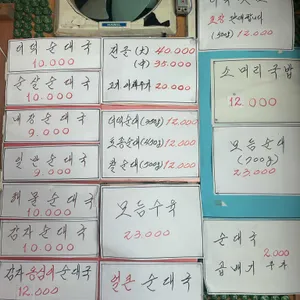 순대국
10.000
순살순대국
10.000
내장순대국
9.000
일반순대국
9.000
해물순대국
10.000
감자순대국
10.000
감자 순대국
12.000
전골(大) 40.000
(中) 35.000
20.000
(300g) 12.000
모듬순대 12.000
찰순대(500g) 12.000
모듬수육
23.000
얼큰순대국
12.000
소머리국밥
12.000
모듬순대
(700g)
23.000
순대국
2.000
곱배기 추가